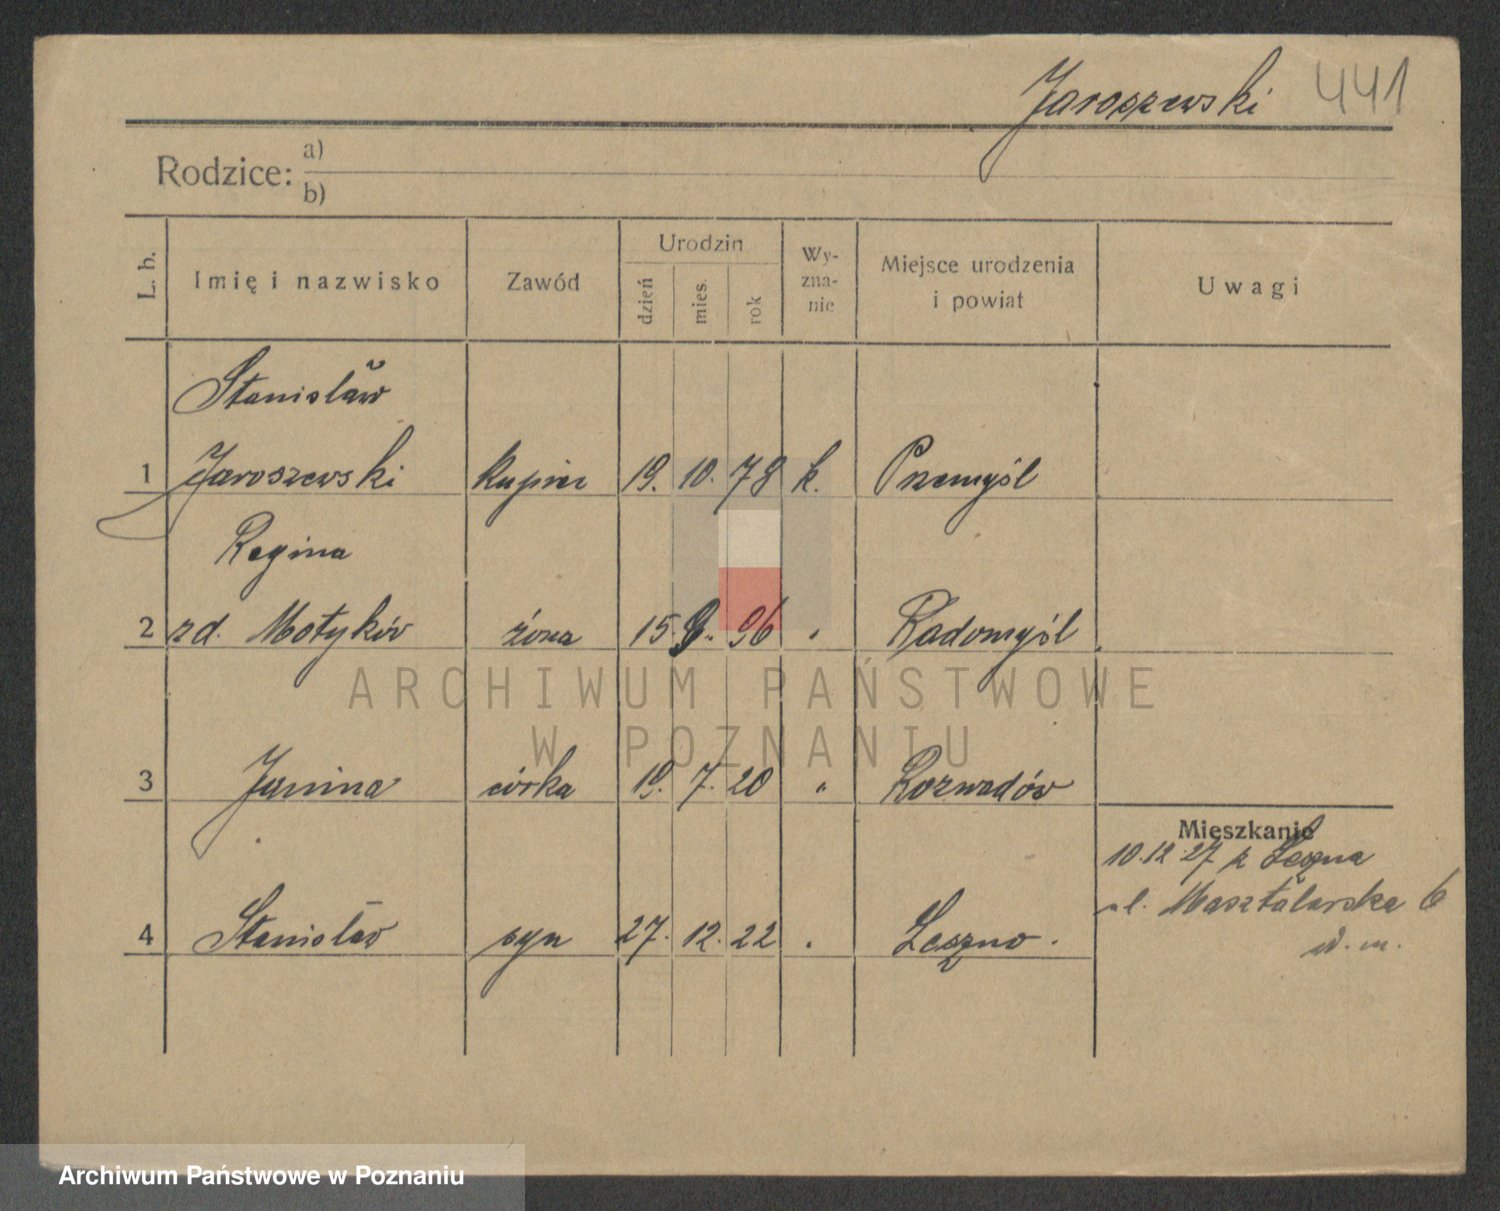 Jaroszewski 441
Rodzice: a)
b)
L. b.
Imię i nazwisko
Zawód
Urodzin
dzień
mies.
rok
Wy-
zna-
nie
Miejsce urodzenia
i powiat
Uwagi
Stanisław
1 Jaroszewski kupiec 19. 10. 78 k. Przemyśl
Regina
2 zd. Motyków żona 15. 9. 96 " Radomyśl
ARCHIWUM PAŃSTWOWE
W POZNANIU
3 Janina córka 19. 7. 20 " Rozwadów
Mieszkanie
10.12.27 z Leszna
ul. Masztalarska 6
w. m.
4 Stanisław syn 27. 12. 22 " Leszno.
Archiwum Państwowe w Poznaniu